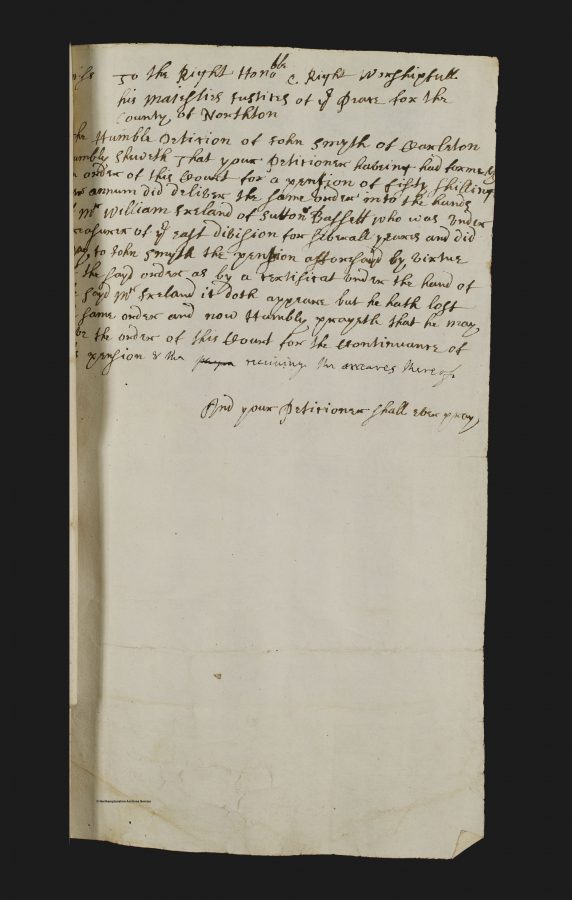 To the Right Honoble & Right Worshipfull
his Maiesties Justices of ye Peace for the
County of Northton
he Humble Peticion of John Smyth of Carleton
umbly Sheweth That your Peticioner haveing had formerly
order of this Court for a pention of fifty shillings
annum did deliver the same order into the hands
Mr William Ireland of Sutton Bassett who was Under
reasurer of ye east division for severall yeares and did
to John Smyth the pension afforesayd by virtue
the sayd order as by a certificat under the hand of
sayd Mr Ireland it doth appeare but he hath lost
same order and now Humbly prayeth that he may
the order of this Court for the Continuance of
pension & the receiving the arreares thereof
And your Peticioner shall ever pray
© Northamptonshire Archives Service